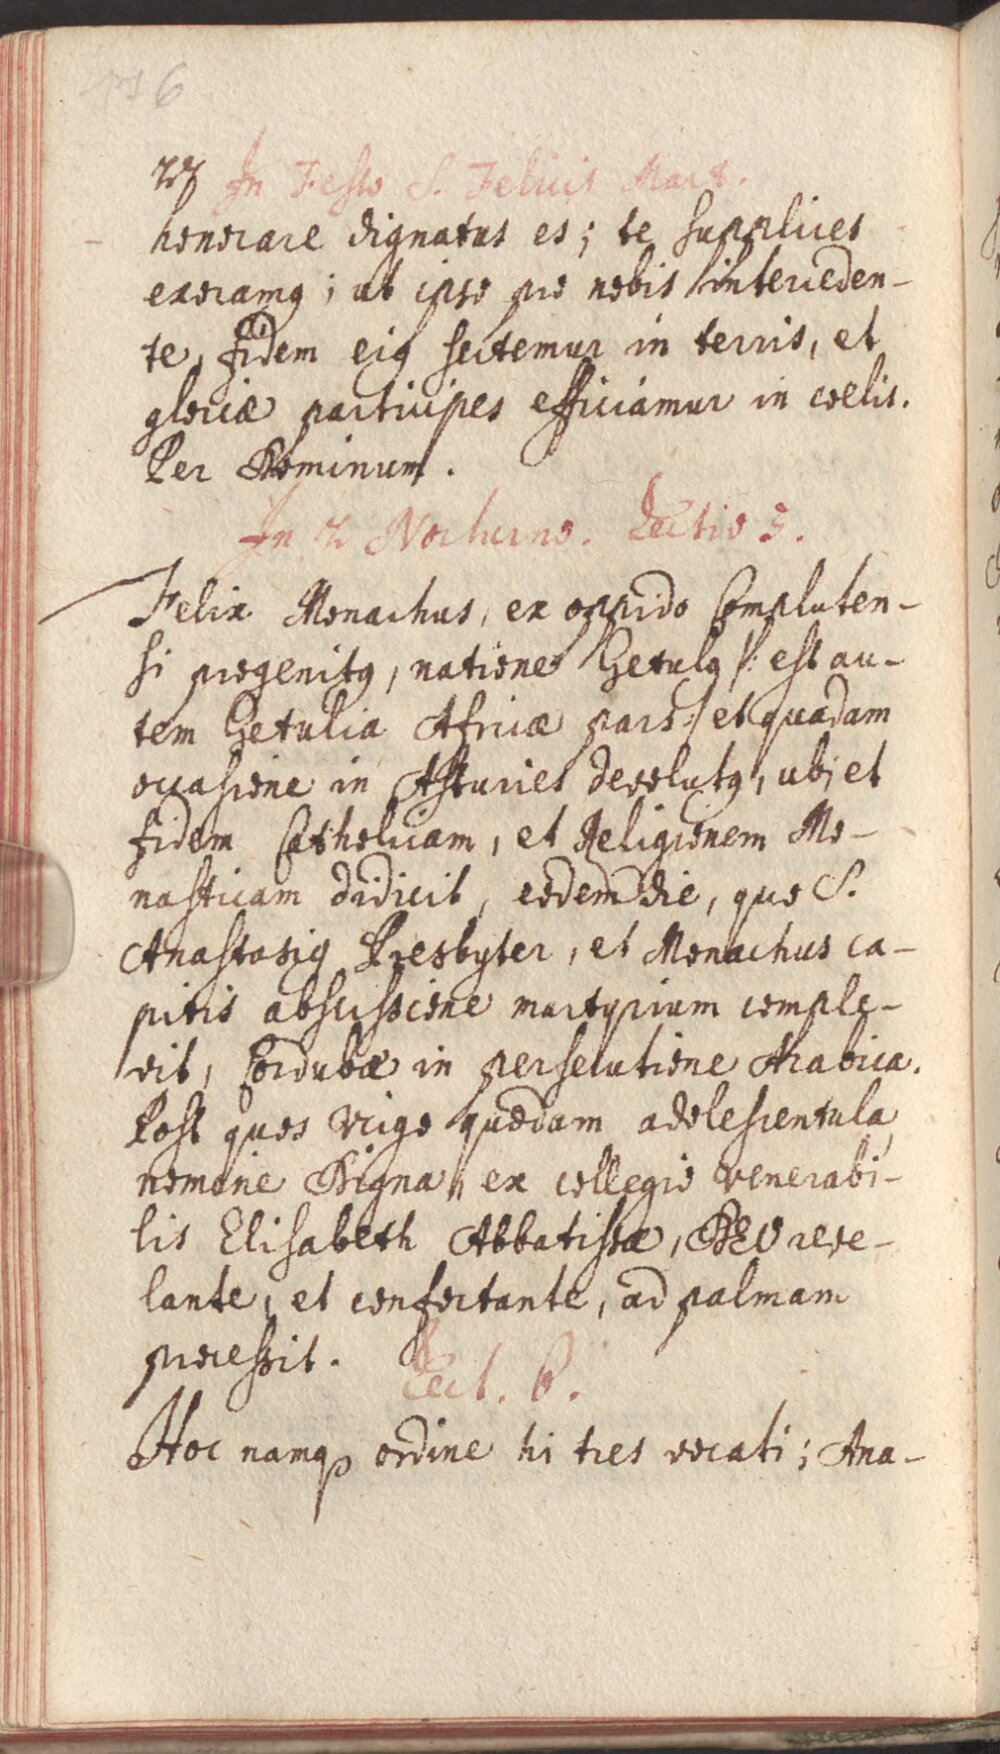 22 In Festo S. Felicis Mart.
honorare dignatus es; te supplices
exoramq; ut ipso pro nobis interceden-
te, fidem eiq sectemur in terris, et
gloriæ participes efficiamur in coelis.
Per Dominum.
In 2 Nocturno. Lectio 5.
Felix Monachus, ex oppido Compluten-
si progenitq, natione Getulq /: est au-
tem Getulia Africæ pars :/ et quadam
occasione in Asturies devolutq, ubi et
fidem Catholicam, et Religionem Mo-
nasticam didicit, eodem die, quo S.
Anastasiq Presbyter, et Monachus ca-
pitis abscissione martyrium comple-
vit, Cordubæ in persecutione Arabica.
Post quos Virgo quædam adolescentula
nomine Digna, ex collegio venerabi-
lis Elisabeth Abbatissæ, DEO reve-
lante, et confortante, ad palmam
processit.
Lect. 6.
Hoc namq ordine hi tres vocati; Ana-